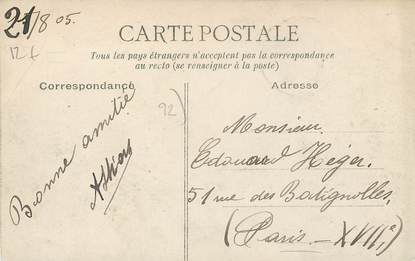 21/8 05.
12 f
CARTE POSTALE
Tous les pays étrangers n'acceptent pas la correspondance
au recto (se renseigner à la poste)
Correspondance
Adresse
Bonne amitié
92)
Monsieur
Edouard Héger.
51 rue des Batignolles.
(Paris - XVIIe)